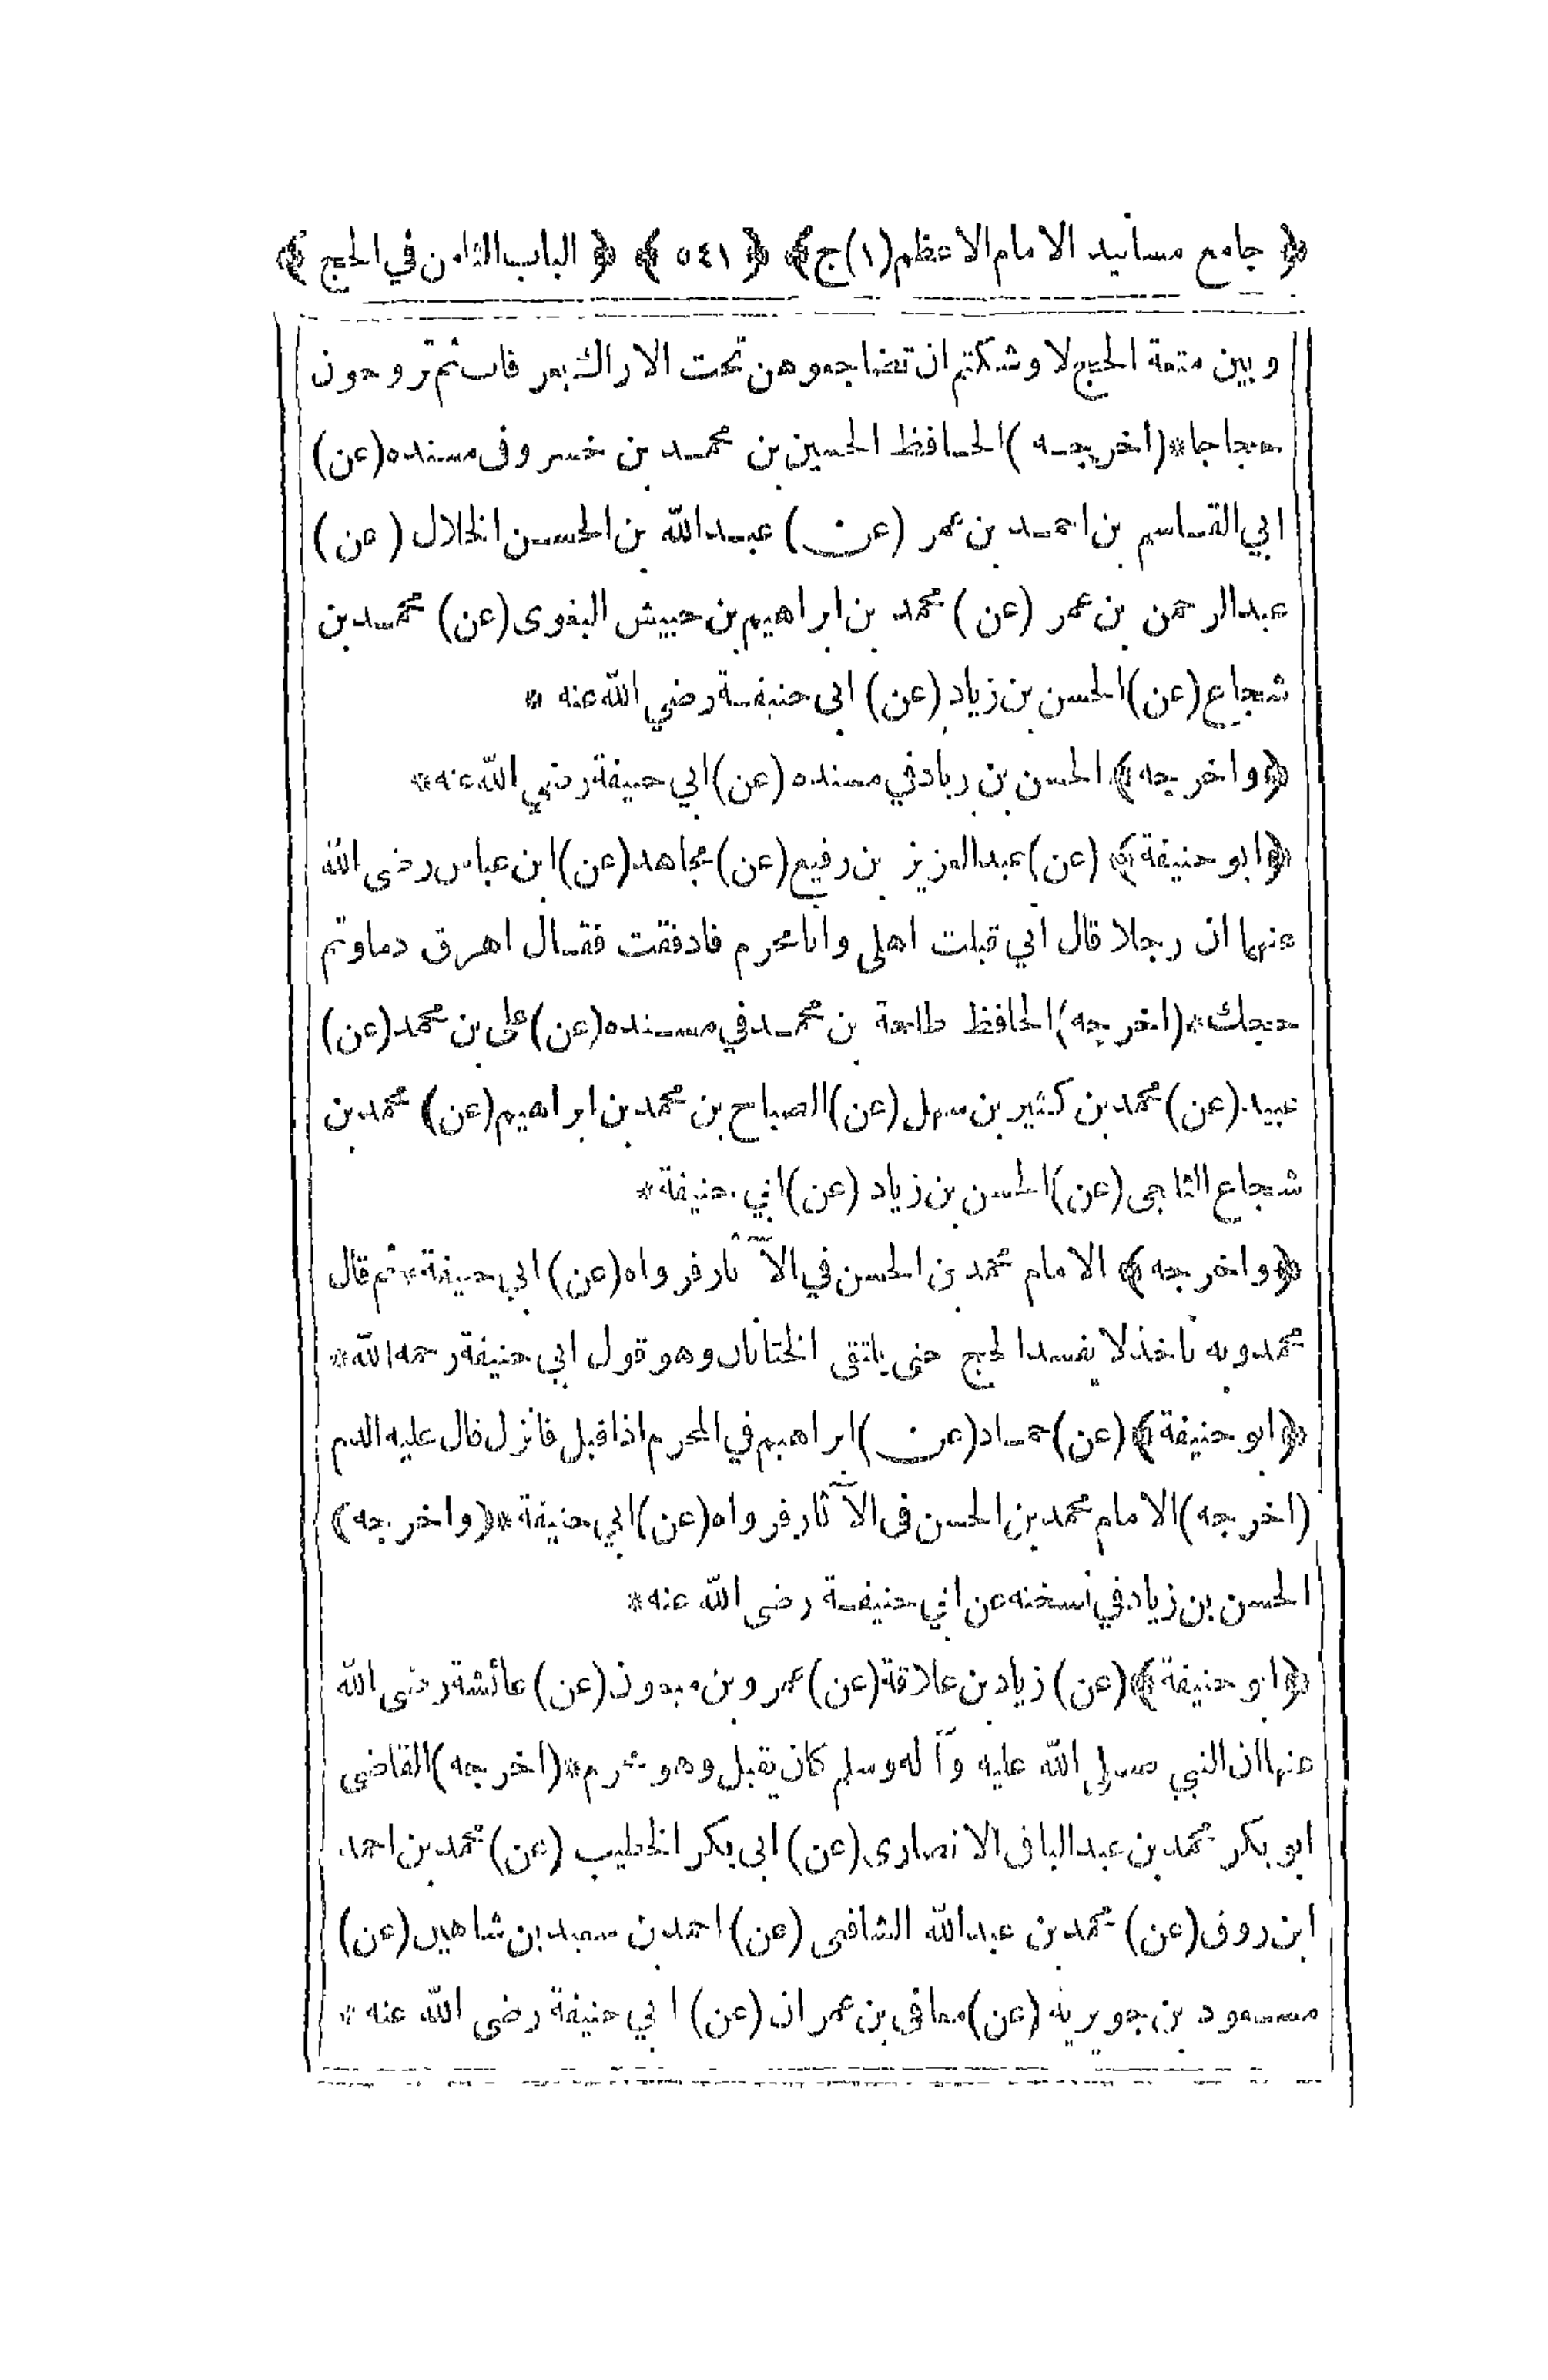 ﴿ جامع مسانيد الامام الاعظم(١)ج﴾ ﴿ ٥٤١ ﴾ ﴿ الباب الثامن في الحج ﴾
وبين متعة الحج لاوشكتم ان تضاجعوهن تحت الاراك بعرفات ثم تروحون
حجاجا*(اخرجه)الحافظ الحسين بن محمد بن خسروفى مسنده(عن)
ابي القاسم بن احمد بن عمر (عن) عبدالله بن الحسن الخلال (عن)
عبدالرحمن بن عمر (عن) محمد بن ابراهيم بن حبيش البغوى(عن) محمد بن
شجاع(عن)الحسن بن زياد(عن) ابى حنيفة رضي الله عنه *
﴿واخرجه﴾ الحسن بن زيادفي مسنده (عن)ابي حنيفة رضي الله عنه*
﴿ابو حنيفة﴾ (عن)عبدالعزيز بن رفيع(عن)مجاهد(عن)ابن عباس رضى الله
عنهما ان رجلا قال اني قبلت اهلي وانا محرم فادفقت فقال اهرق دماوتم
حجك*(اخرجه)الحافظ طلحة بن محمد في مسنده(عن)على بن محمد(عن)
عبيد(عن)محمد بن كثير بن سهل(عن)الصباح بن محمد بن ابراهيم(عن) محمد بن
شجاع الثلجى(عن)الحسن بن زياد (عن)ابي حنيفة*
﴿واخرجه﴾ الامام محمد بن الحسن في الآثار فرواه(عن)ابي حنيفة*ثم قال
محمدوبه ناخذلا يفسدالحج حتى يلتقى الختانان وهو قول ابى حنيفة رحمه الله*
﴿ابو حنيفة﴾(عن)حماد(عن)ابراهيم في المحرم اذاقبل فانزل قال عليه الدم
(اخرجه)الامام محمد بن الحسن فى الآثار فرواه(عن)ابي حنيفة*(واخرجه)
الحسن بن زيادفي نسخته عن ابي حنيفة رضى الله عنه*
﴿ابو حنيفة﴾(عن) زياد بن علاقة(عن)عمرو بن ميمون(عن)عائشة رضى الله
عنهاان النبي صلى الله عليه وآله وسلم كان يقبل وهو محرم*(اخرجه)القاضى
ابو بكر محمد بن عبدالباقى الانصارى(عن)ابى بكر الخطيب (عن)محمد بن احمد
ابن روق(عن) محمد بن عبدالله الشافعى (عن)احمد بن سعيد بن شاهين(عن)
مسعود بن جويرية (عن)معافى بن عمران (عن) ابي حنيفة رضى الله عنه*